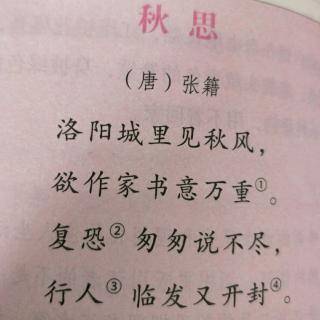 秋思
（唐）张籍
洛阳城里见秋风，
欲作家书意万重①。
复恐②匆匆说不尽，
行人③临发又开封④。